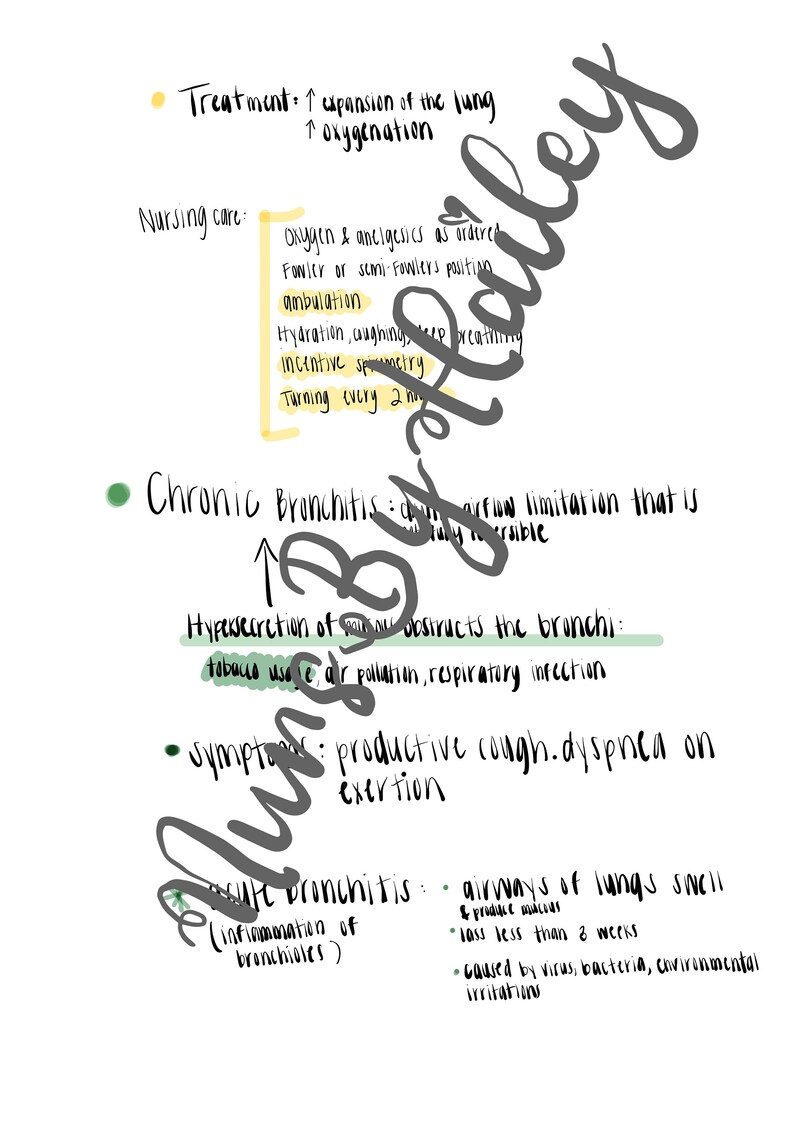 Treatment: ↑ expansion of the lung
↑ oxygenation
Nursing care:
Oxygen & anelgesics as ordered
Fowler or semi-Fowlers position
ambulation
Hydration, coughing, deep breathing
incentive spirometry
Turning every 2
Chronic Bronchitis: airflow limitation that is
fully reversible
Hypersecretion of obstructs the bronchi:
tobacco usage, air pollution, respiratory infection
symptoms: productive cough. dyspnea on
exertion
acute bronchitis:
(inflammation of
bronchioles)
airways of lungs swell
& produce mucous
lass less than 3 weeks
caused by virus, bacteria, environmental
irritations
Nurse By Hailey